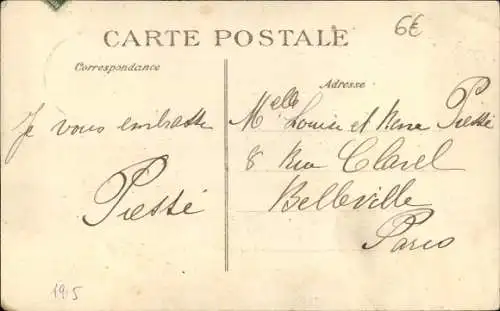 CARTE POSTALE
6€
Correspondance
Adresse
Je vous embrasse
Piessé
Melle Louise et Rene Piessé
8 Rue Clavel
Belleville
Paris
1915